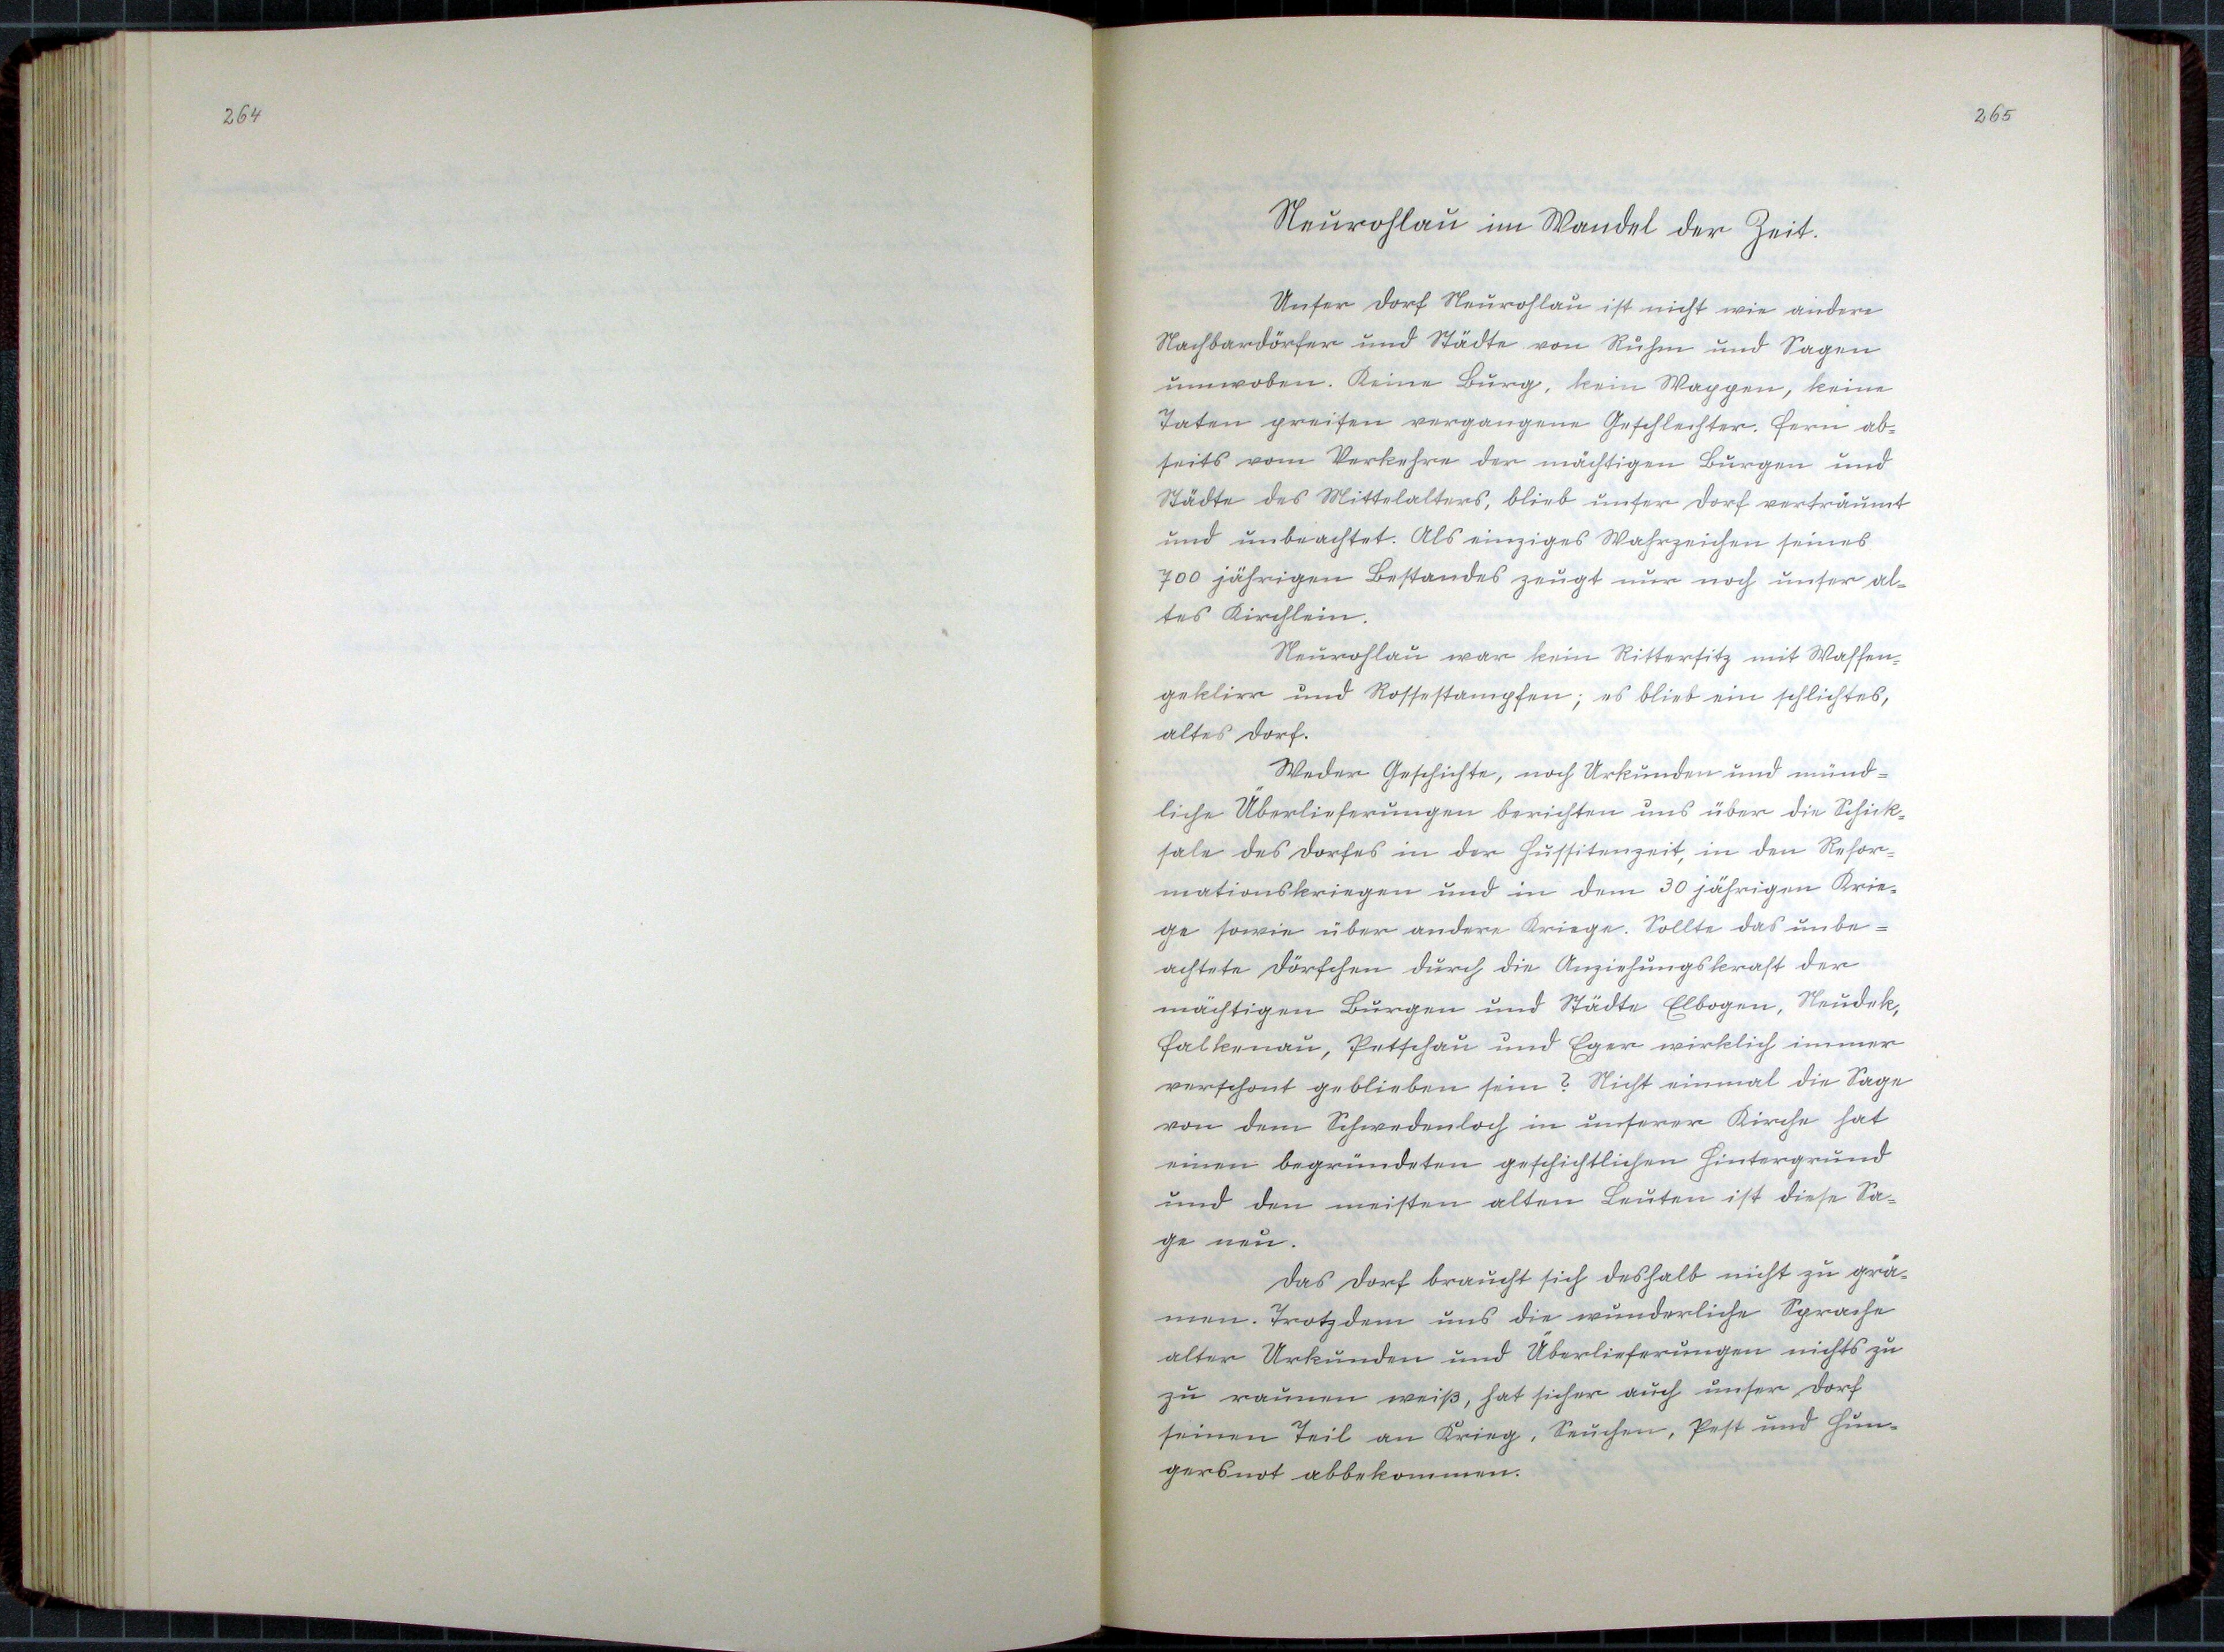 264
265
Neurohlau im Wandel der Zeit.
Unser Dorf Neurohlau ist nicht wie andere
Nachbardörfer und Städte von Ruhm und Sagen
umwoben. Keine Burg, kein Wappen, keine
Taten preisen vergangene Geschlechter. Fern ab-
seits vom Verkehre der mächtigen Burgen und
Städte des Mittelalters, blieb unser Dorf verträumt
und unbeachtet. Als einziges Wahrzeichen seines
700 jährigen Bestandes zeugt nur noch unser al-
tes Kirchlein.
Neurohlau war kein Rittersitz mit Waffen-
geklirr und Rossestampfen; es blieb ein schlichtes,
altes Dorf.
Weder Geschichte, noch Urkunden und münd-
liche Überlieferungen berichten uns über die Schick-
sale des Dorfes in der Hussitenzeit, in den Refor-
mationskriegen und in dem 30 jährigen Krie-
ge sowie über andere Kriege. Sollte das unbe-
achtete Dörfchen durch die Anziehungskraft der
mächtigen Burgen und Städte Elbogen, Neudek,
Falkenau, Petschau und Eger wirklich immer
verschont geblieben sein? Nicht einmal die Sage
von dem Schwedenloch in unserer Kirche hat
einen begründeten geschichtlichen Hintergrund
und den meisten alten Leuten ist diese Sa-
ge neu.
Das Dorf braucht sich deshalb nicht zu grä-
men. Trotzdem uns die wunderliche Sprache
alter Urkunden und Überlieferungen nichts zu
zu raunen weiß, hat sicher auch unser Dorf
seinen Teil an Krieg, Seuchen, Pest und Hun-
gersnot abbekommen.